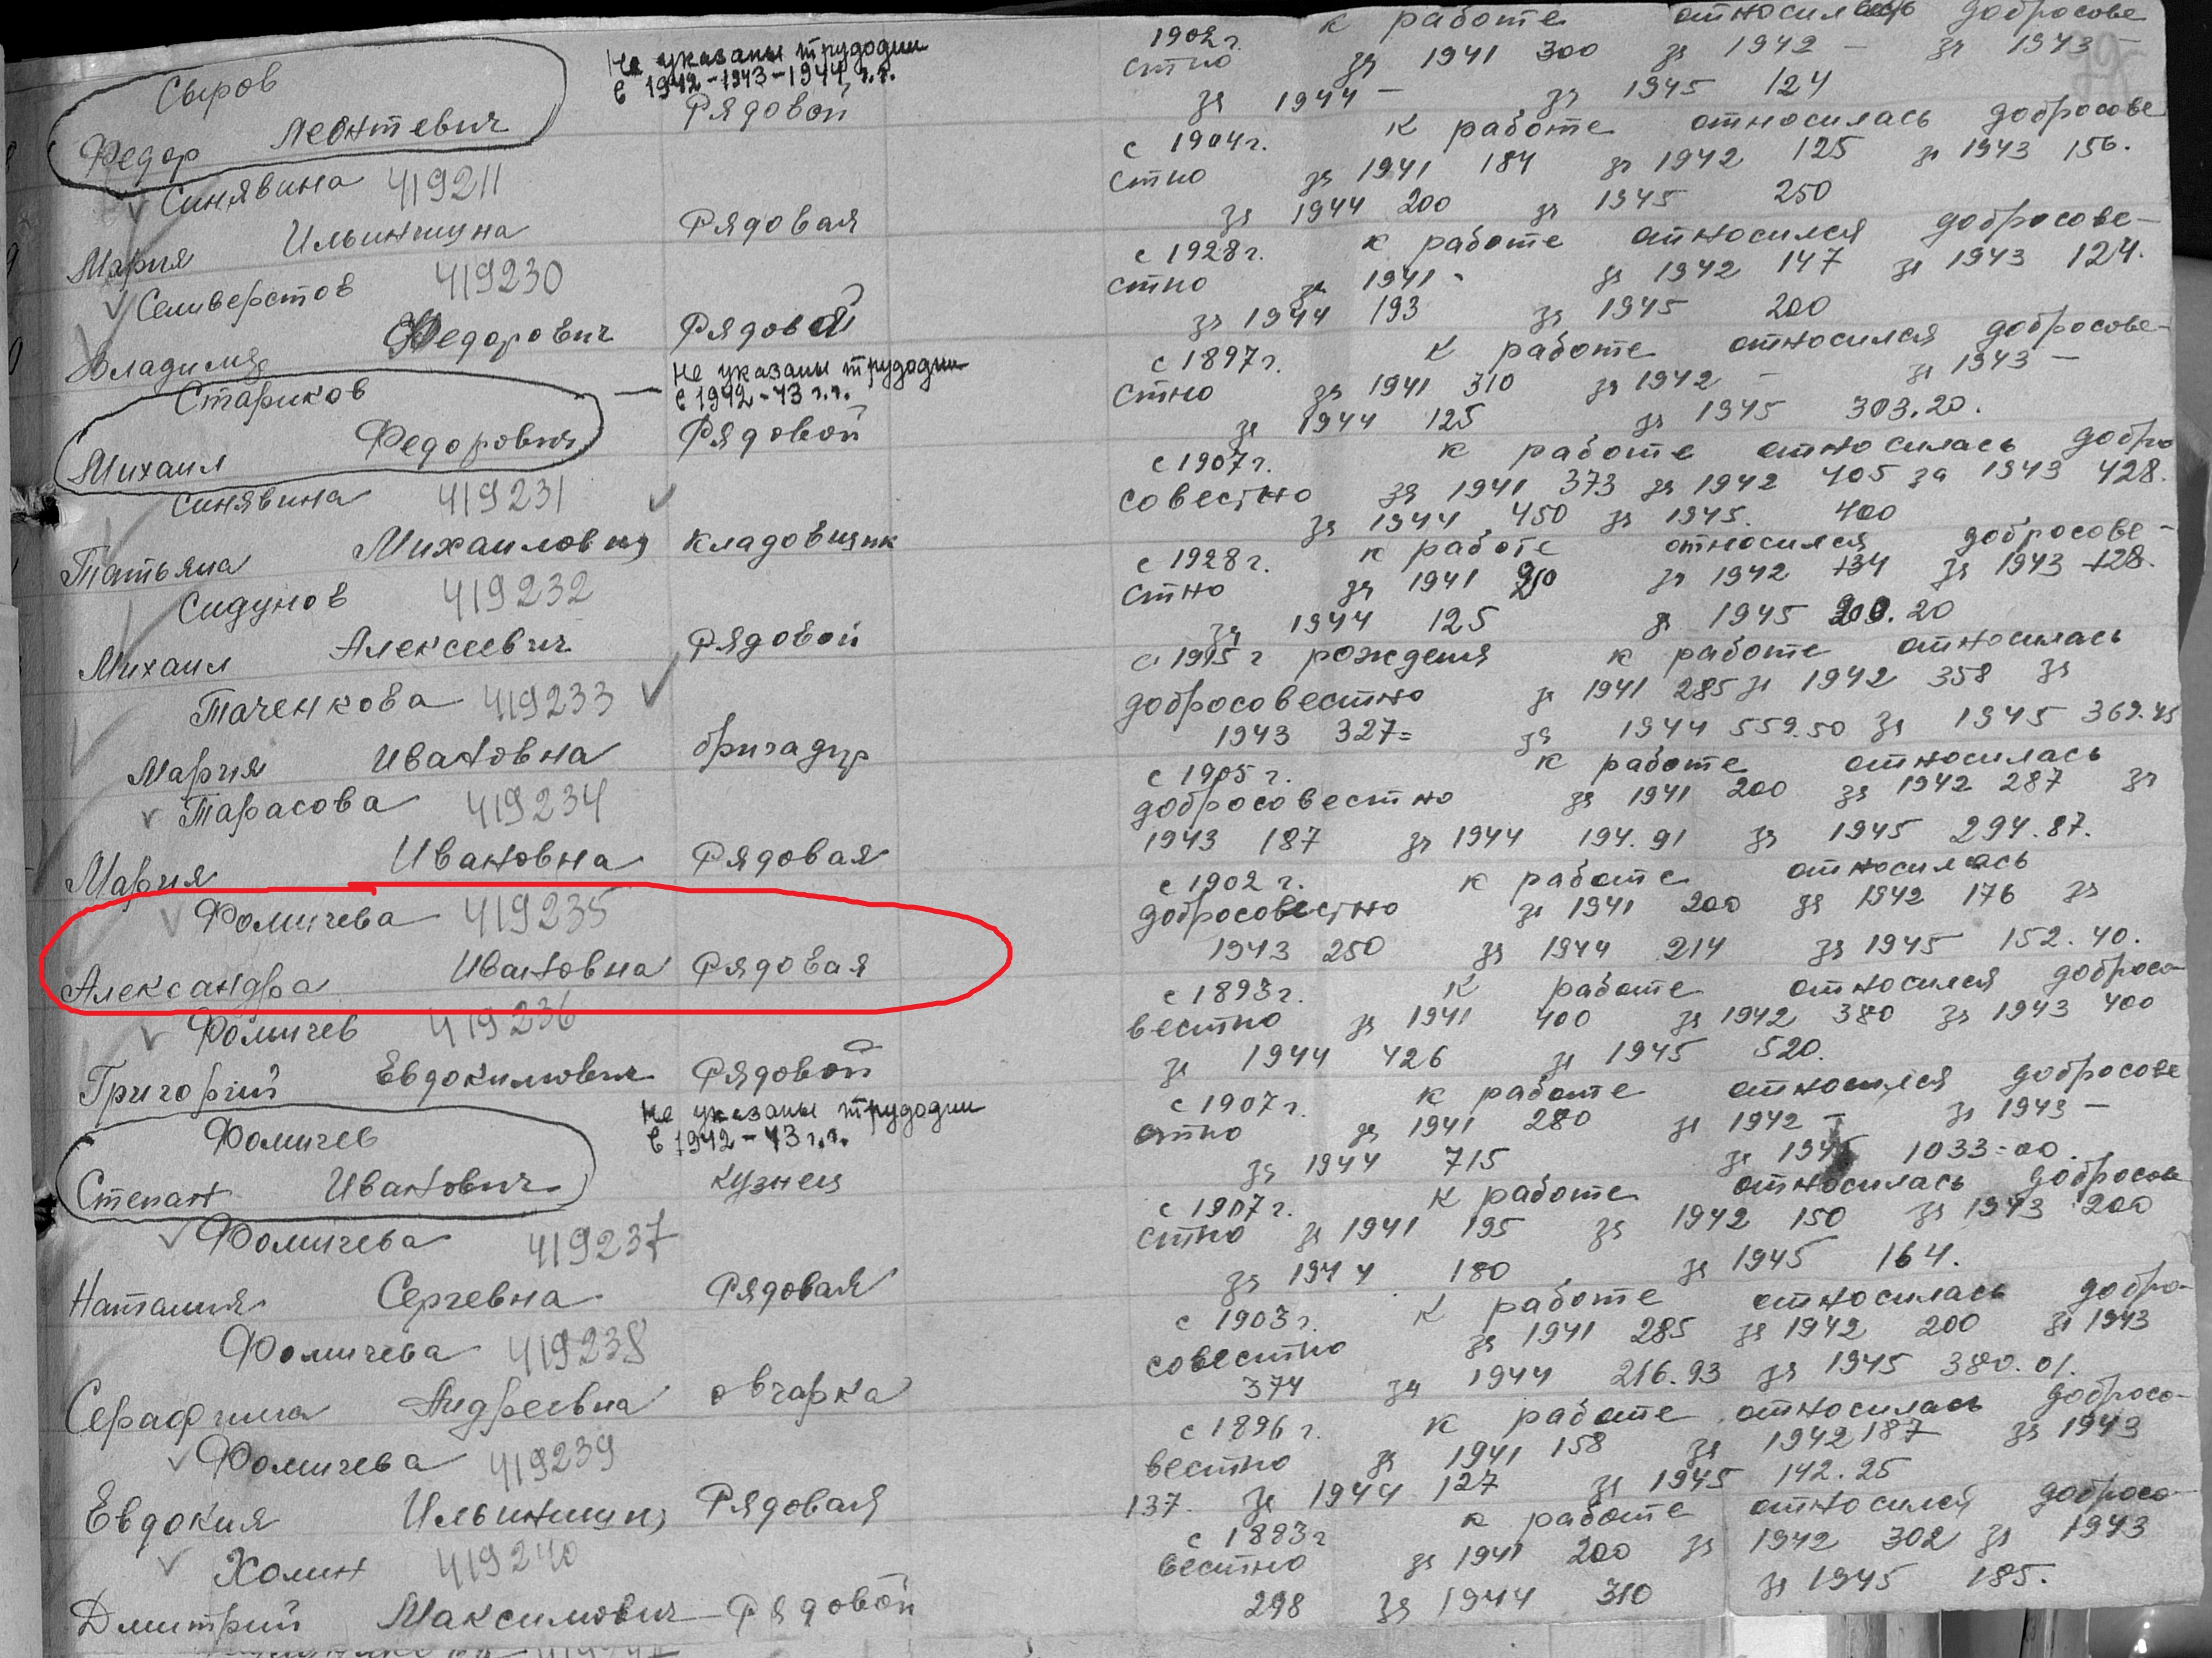 Сыров
Не указаны трудодни
с 1942-1943-1944 г.г.
Федор Леонтевич Рядовой
1902г. к работе относилась добросове
стно за 1941 300 за 1942 — за 1943 —
за 1944 — за 1945 124
Синявина 419211
Мария Ильинична Рядовая
с 1904г. к работе относилась добросове
стно за 1941 184 за 1942 125 за 1943 156.
за 1944 200 за 1945 250
Селиверстов 419230
Владимир Федорович Рядовой
с 1928г. к работе относился добросове-
стно за 1941 - за 1942 147 за 1943 124.
за 1944 193 за 1945 200
Стариков
не указаны трудодни
с 1942-43 г.г.
Михаил Федорович Рядовой
с 1897г. к работе относился добросове-
стно за 1941 310 за 1942 — за 1943 —
за 1944 125 за 1945 303.20.
Синявина 419231
Татьяна Михаиловна кладовщик
с 1907г. к работе относилась добро
совестно за 1941 373 за 1942 405 за 1943 428.
за 1944 450 за 1945. 400
Сидунов 419232
Михаил Алексеевич Рядовой
с 1928г. к работе относился добросове-
стно за 1941 210 за 1942 134 за 1943 128.
за 1944 125 за 1945 200.20
Таченкова 419233
Мария Ивановна бригадир
с 1915 г рождения к работе относилась
добросовестно за 1941 285 за 1942 358 за
1943 327= за 1944 559.50 за 1945 369.45
Тарасова 419234
Мария Ивановна Рядовая
с 1905г. к работе относилась
добросовестно за 1941 200 за 1942 287 за
1943 187 за 1944 194.91 за 1945 294.87.
Фомичева 419235
Александра Ивановна Рядовая
с 1902г. к работе относилась
добросовестно за 1941 200 за 1942 176 за
1943 250 за 1944 214 за 1945 152.40.
Фомичев 419236
Григорий Евдокимович Рядовой
с 1893г. к работе относился добросо-
вестно за 1941 400 за 1942 380 за 1943 400
за 1944 426 за 1945 520.
Фомичев
не указаны трудодни
с 1942-43 г.г.
Степан Иванович кузнец
с 1907г. к работе относился добросове
стно за 1941 280 за 1942 — за 1943 —
за 1944 715 за 1945 1033=00.
Фомичева 419237
Наталия Сергевна Рядовая
с 1907г. к работе относилась добросове
стно за 1941 195 за 1942 150 за 1943 200
за 1944 180 за 1945 164.
Фомичева 419238
Серафима Андреевна овчарка
с 1903г. к работе относилась добро-
совестно за 1941 285 за 1942 200 за 1943
374 за 1944 216.93 за 1945 380.01.
Фомичева 419239
Евдокия Ильинична Рядовая
с 1896г. к работе относилась добросо-
вестно за 1941 158 за 1942 187 за 1943
137. за 1944 127 за 1945 142.25
Холин 419240
Дмитрий Максимович Рядовой
с 1883г к работе относился добросо-
вестно за 1941 200 за 1942 302 за 1943
298 за 1944 310 за 1945 185.